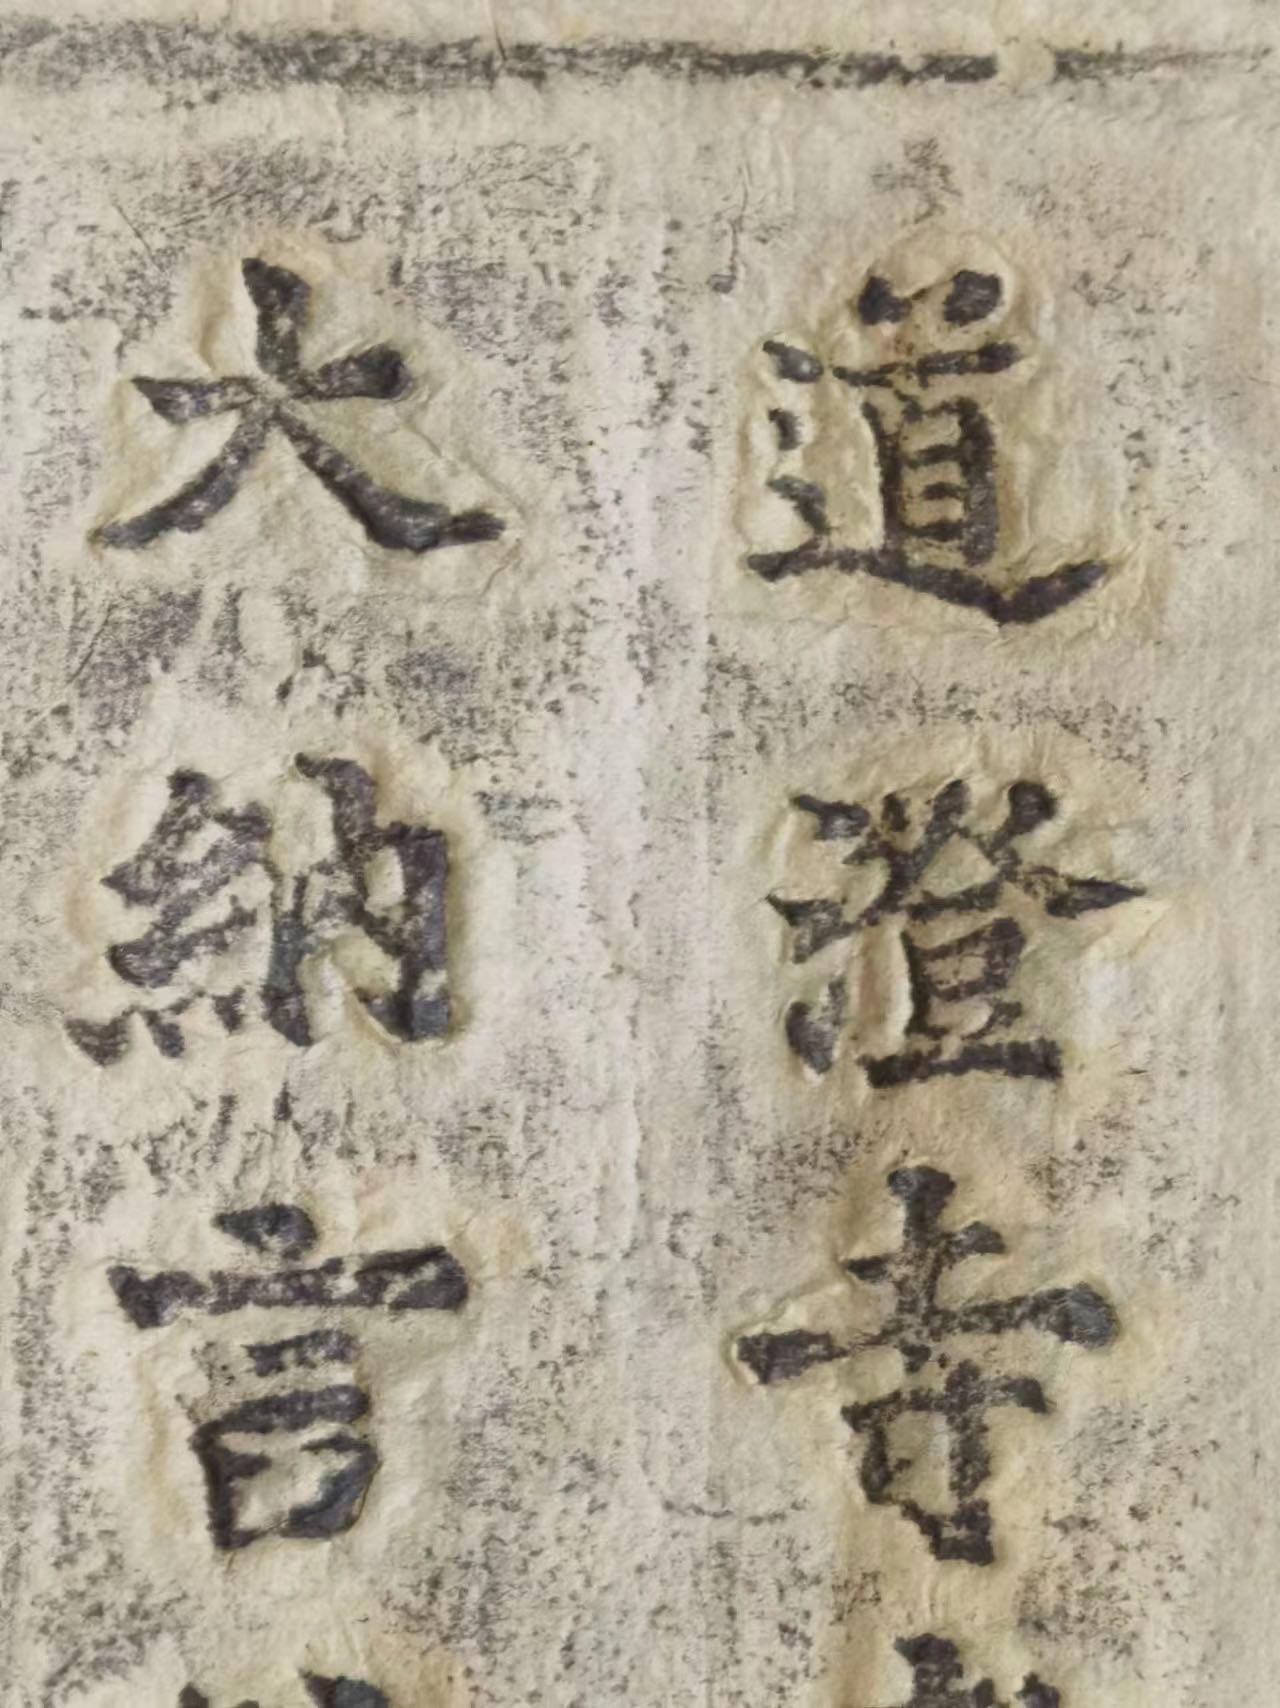 道澄寺
大納言